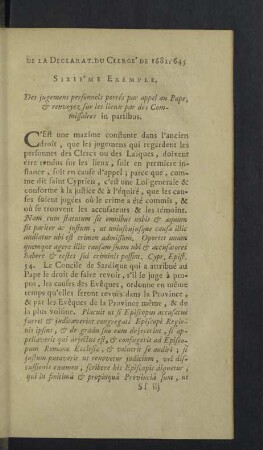 DE LA DECLARAT. DU CLERGÉ DE 1682. 645
SIXIE'ME EXEMPLE,
Des jugemens personnels portés par appel au Pape,
& renvoyez sur les lieux par des Com-
missaires in partibus.
C'Est une maxime constante dans l'ancien
droit, que les jugemens qui regardent les
personnes des Clercs ou des Laïques, doivent
être rendus sur les lieux, soit en premiere ins-
stance, soit en cause d'appel; parce que, com-
me dit saint Cyprien, c'est une Loi generale &
conforme à la justice & à l'équité, que les cau-
ses soient jugées où le crime a été commis, &
où se trouvent les accusateurs & les témoins.
Nam cum statutum sit omnibus nobis & æquum
sit pariter ac justum, ut uniuscujusque causa illic
audiatur ubi est crimen admissum, Oportet utique
agere illic causam suam ubi & accusatores
habere & testes sui criminis possint. Cypr. Epist.
54. Le Concile de Sardique qui a attribué au
Pape le droit de faire revoir, s'il le juge à pro-
pos, les causes des Evêques, ordonne en même
temps qu'elles seront revûës dans la Province,
& par les Evêques de la Province même, & de
la plus voisine. Placuit ut si Episcopus accusatus
fuerit & judicaverint congregati Episcopi Regio-
nis ipsius, & de gradu suo eum dejecerint, si ap-
pellaverit qui dejectus est, & confugerit ad Episco-
pum Romanæ Ecclesiæ, & voluerit se audiri; si
justum putaverit ut renovetur judicium, vel dis-
cussionis examen, scribere his Episcopis dignetur,
qui in finitima & propinqua Provincia sunt, ut
Sf iij